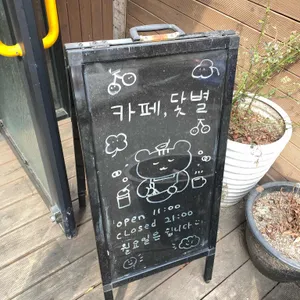 카페, 닻별
open 11:00
closed 21:00
월요일은 쉽니다